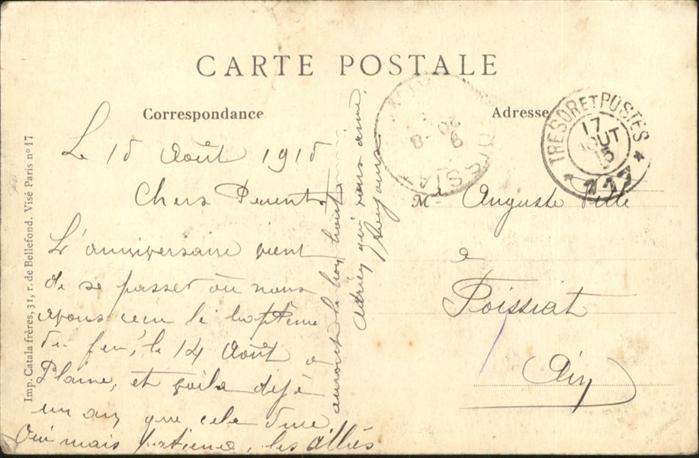 CARTE POSTALE
Correspondance
Adresse
TRESOR ET POSTES
17
AOUT
15
* 117 *
POISSIAT
Le 15 Août 1915
Chers Parents
L'anniversaire vient
de se passer où nous
avons reçu le baptême
du feu, le 14 Août à
Plaine, et voilà déjà
un an que cela dure
Oui mais patience, les alliés
auront le bon bout
Adrien qui vous aime,
toujours
Mr Auguste
à
Poissiat
Ain
Imp. Catala frères, 31, r. de Bellefond. Visé Paris nº 17